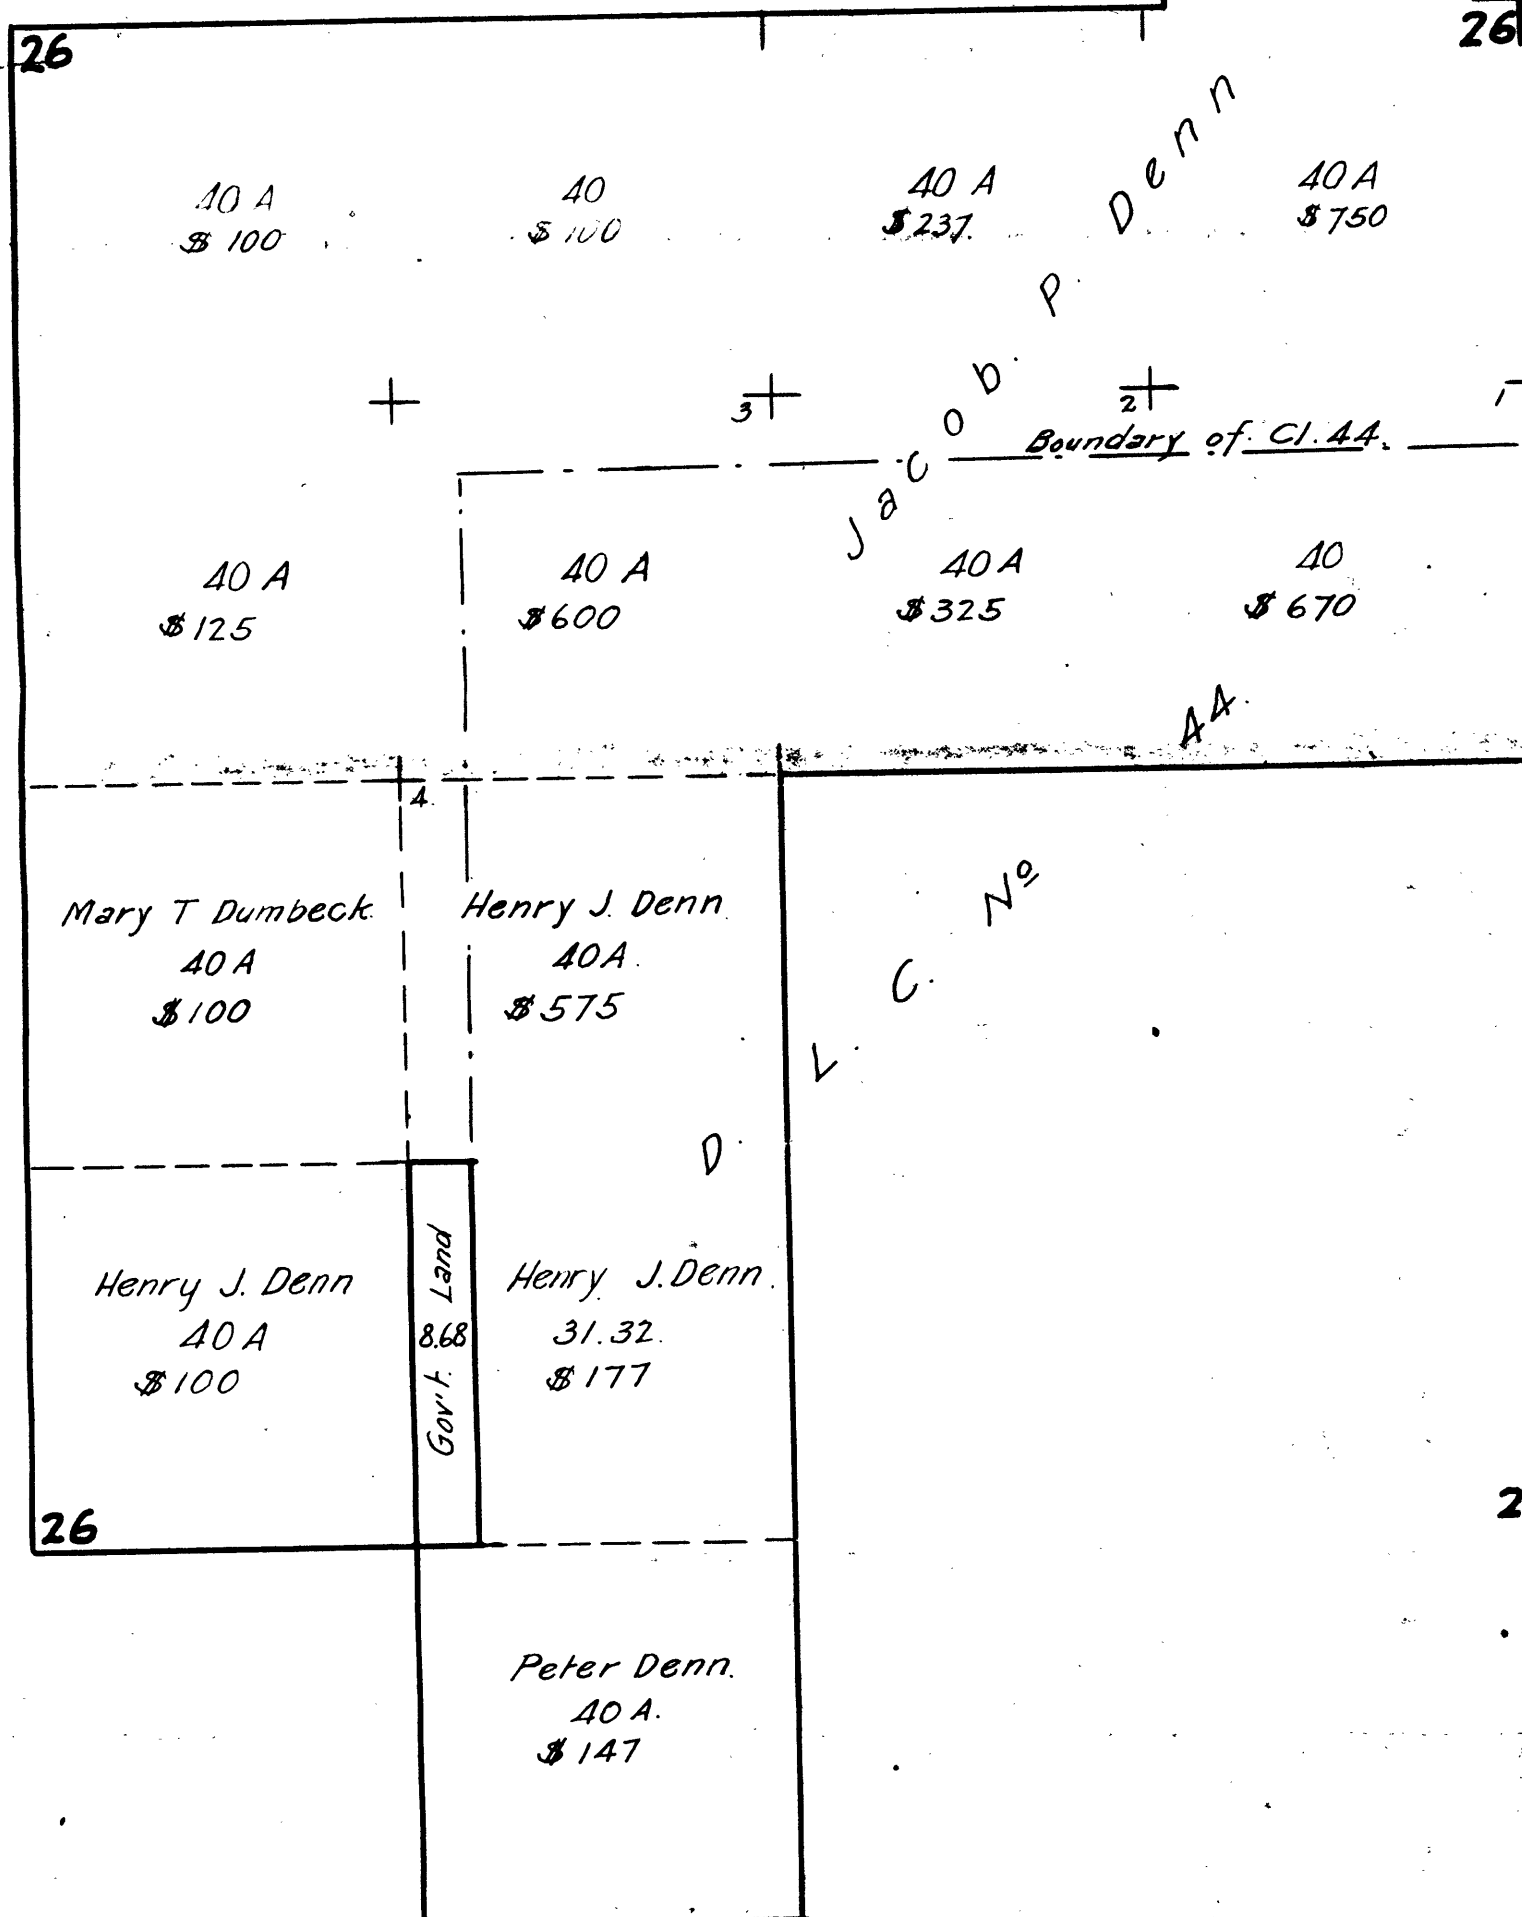 26
26
40 A
$ 100
40
$ 100
40 A
$ 237.
40 A
$ 750
Jacob P. Denn
3
2
1
Boundary of Cl. 44.
40 A
$ 125
40 A
$ 600
40 A
$ 325
40
$ 670
4.
D. L. C. Nº 44.
Mary T Dumbeck
40 A
$ 100
Henry J. Denn
40 A.
$ 575
Henry J. Denn
40 A
$ 100
Gov't. Land
8.68
Henry J. Denn.
31.32.
$ 177
26
2
Peter Denn.
40 A.
$ 147